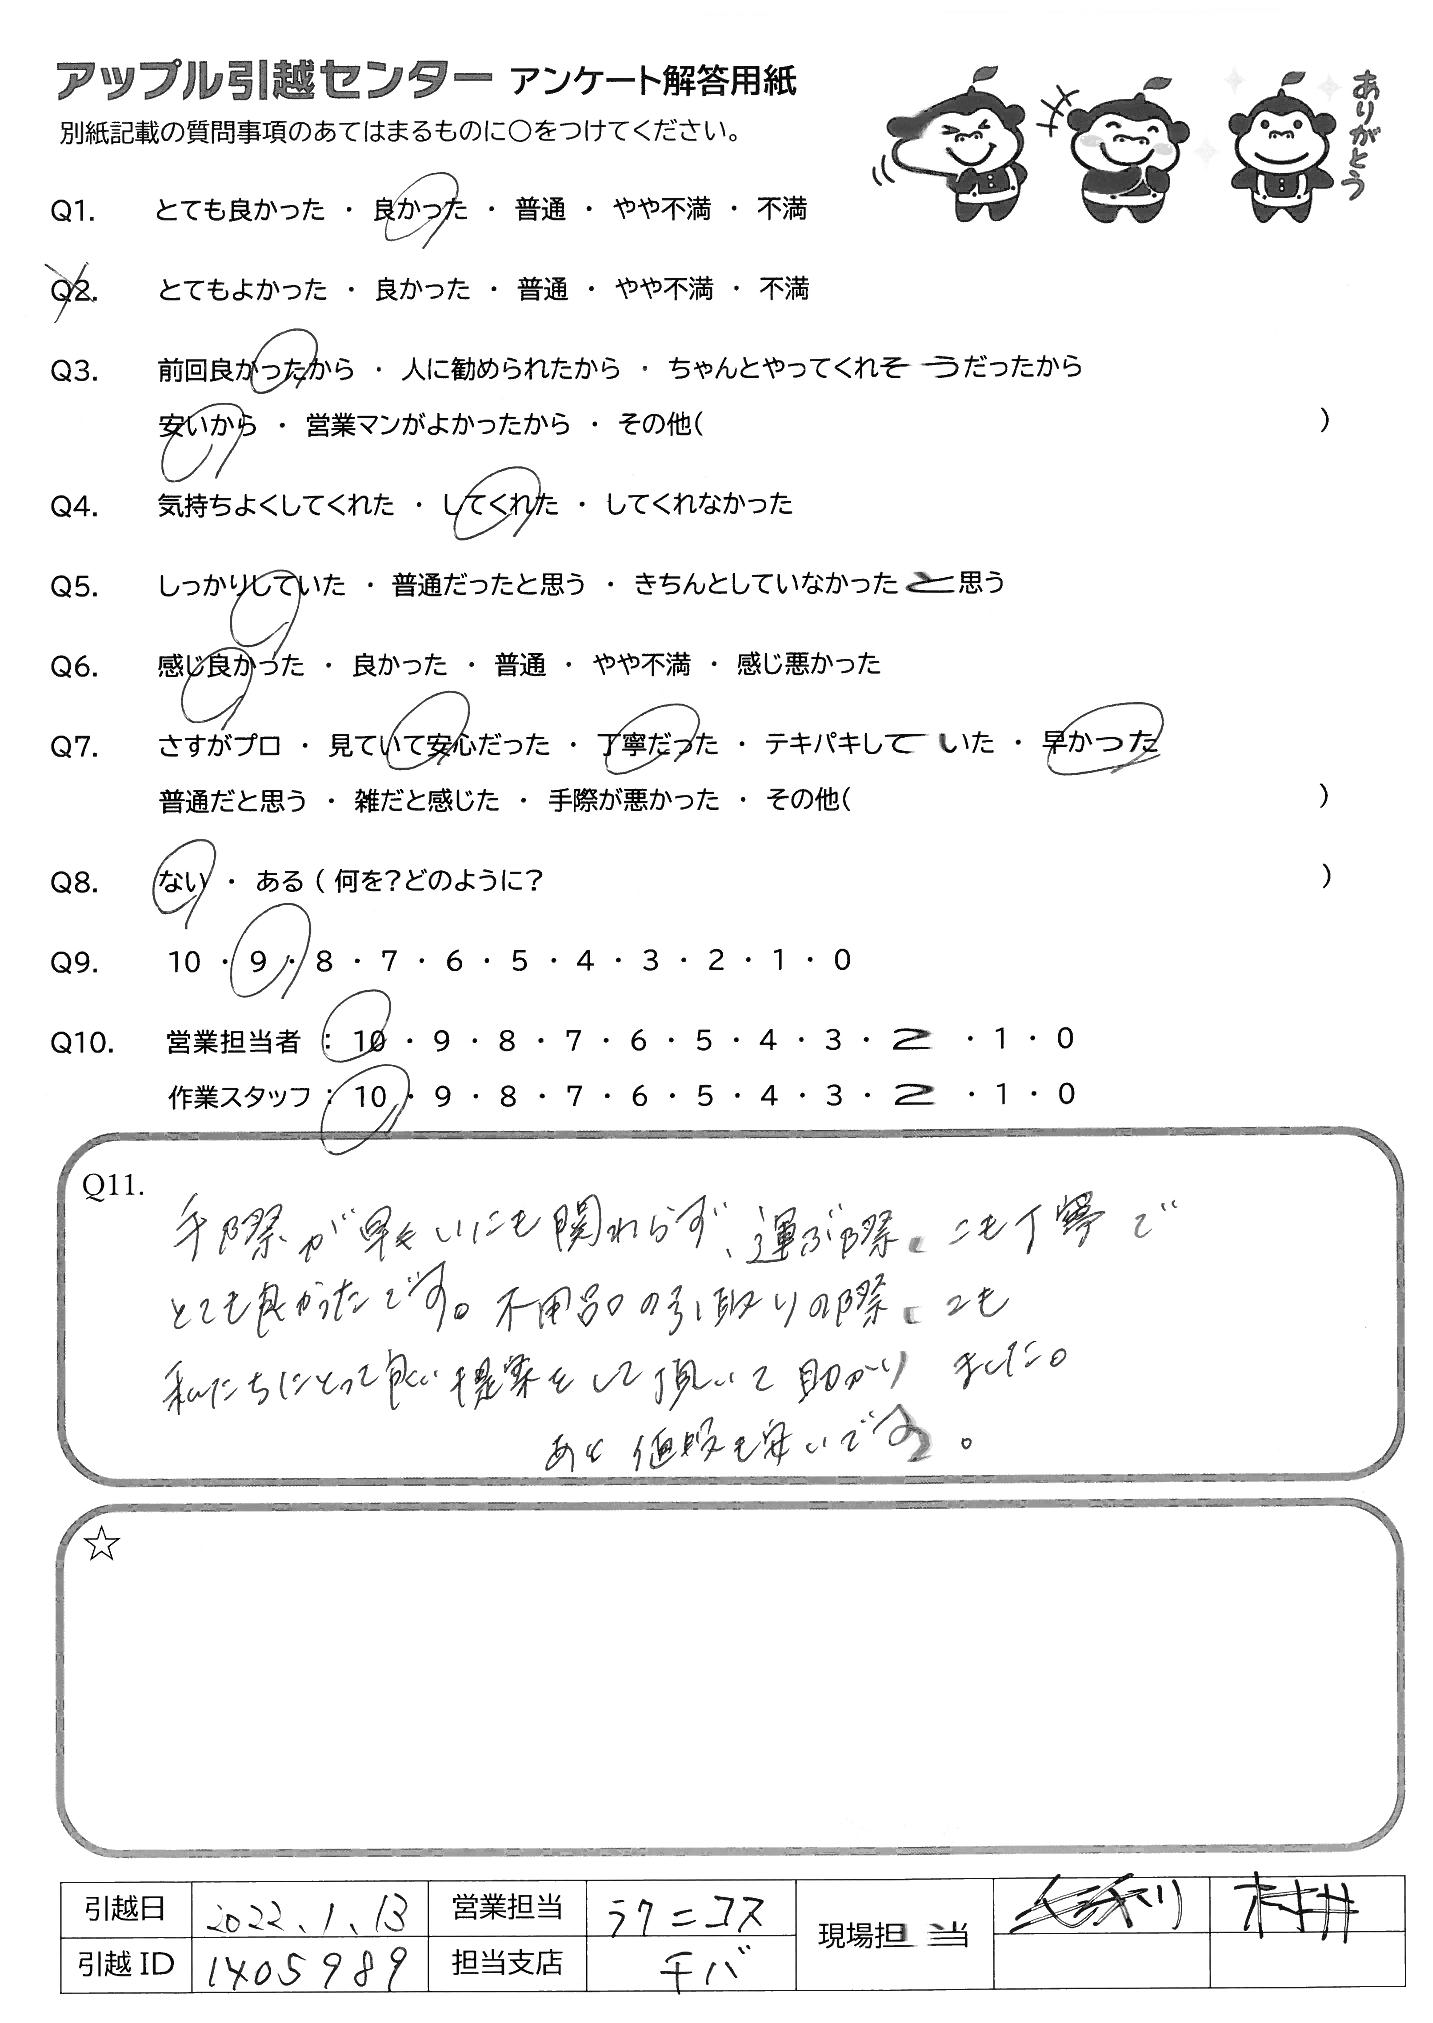 アップル引越センター アンケート解答用紙
ありがとう
別紙記載の質問事項のあてはまるものに○をつけてください。
Q1. とても良かった ・ 良かった ・ 普通 ・ やや不満 ・ 不満
Q2. とてもよかった ・ 良かった ・ 普通 ・ やや不満 ・ 不満
Q3. 前回良かったから ・ 人に勧められたから ・ ちゃんとやってくれそうだったから
安いから ・ 営業マンがよかったから ・ その他( )
Q4. 気持ちよくしてくれた ・ してくれた ・ してくれなかった
Q5. しっかりしていた ・ 普通だったと思う ・ きちんとしていなかったと思う
Q6. 感じ良かった ・ 良かった ・ 普通 ・ やや不満 ・ 感じ悪かった
Q7. さすがプロ ・ 見ていて安心だった ・ 丁寧だった ・ テキパキしていた ・ 早かった
普通だと思う ・ 雑だと感じた ・ 手際が悪かった ・ その他( )
Q8. ない ・ ある ( 何を?どのように? )
Q9. 10 ・ 9 ・ 8 ・ 7 ・ 6 ・ 5 ・ 4 ・ 3 ・ 2 ・ 1 ・ 0
Q10. 営業担当者 : 10 ・ 9 ・ 8 ・ 7 ・ 6 ・ 5 ・ 4 ・ 3 ・ 2 ・ 1 ・ 0
作業スタッフ : 10 ・ 9 ・ 8 ・ 7 ・ 6 ・ 5 ・ 4 ・ 3 ・ 2 ・ 1 ・ 0
Q11.
手際が早いにも関わらず、運ぶ際にも丁寧で
とても良かったです。不用品の引取りの際にも
私たちにとって良い提案をして頂いて助かりました。
あと値段も安いです。
☆
引越日 2022.1.13 営業担当 ラクニコス 現場担当
引越ID 1405989 担当支店 チバ